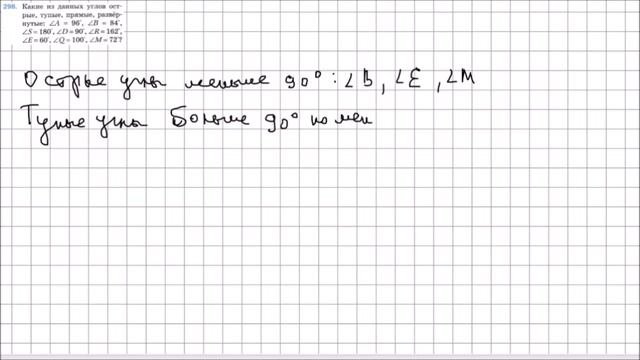 298. Какие из данных углов ост-
рые, тупые, прямые, развёр-
нутые: ∠A = 96°, ∠B = 84°,
∠S=180°, ∠D=90°, ∠R=162°,
∠E=60°, ∠Q=100°, ∠M=72°?
Острые углы меньше 90° : ∠B, ∠E, ∠M
Тупые углы больше 90° но мен